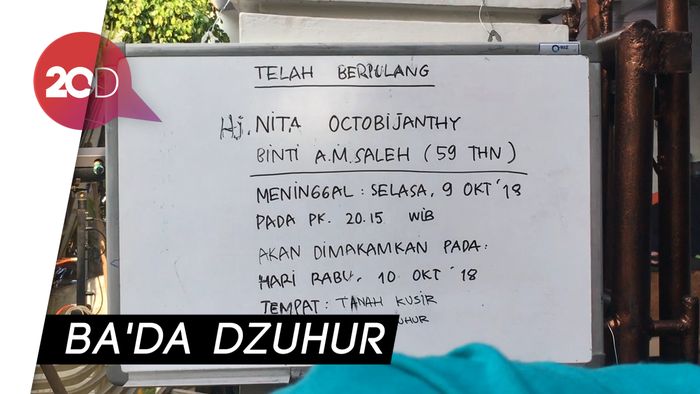 20D
TELAH BERPULANG
Hj. NITA OCTOBIJANTHY
BINTI A.M. SALEH (59 THN)
MENINGGAL : SELASA, 9 OKT '18
PADA PK. 20.15 WIB
AKAN DIMAKAMKAN PADA :
HARI RABU, 10 OKT '18
TEMPAT : TANAH KUSIR
BA'DA DZUHUR